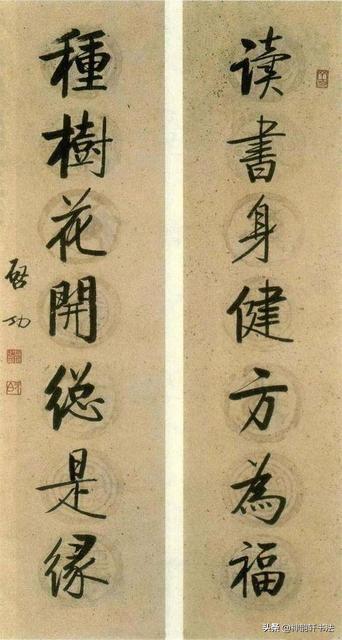 读書身健方為福
種樹花開總是緣
啓功
头条@柳鹤轩书法